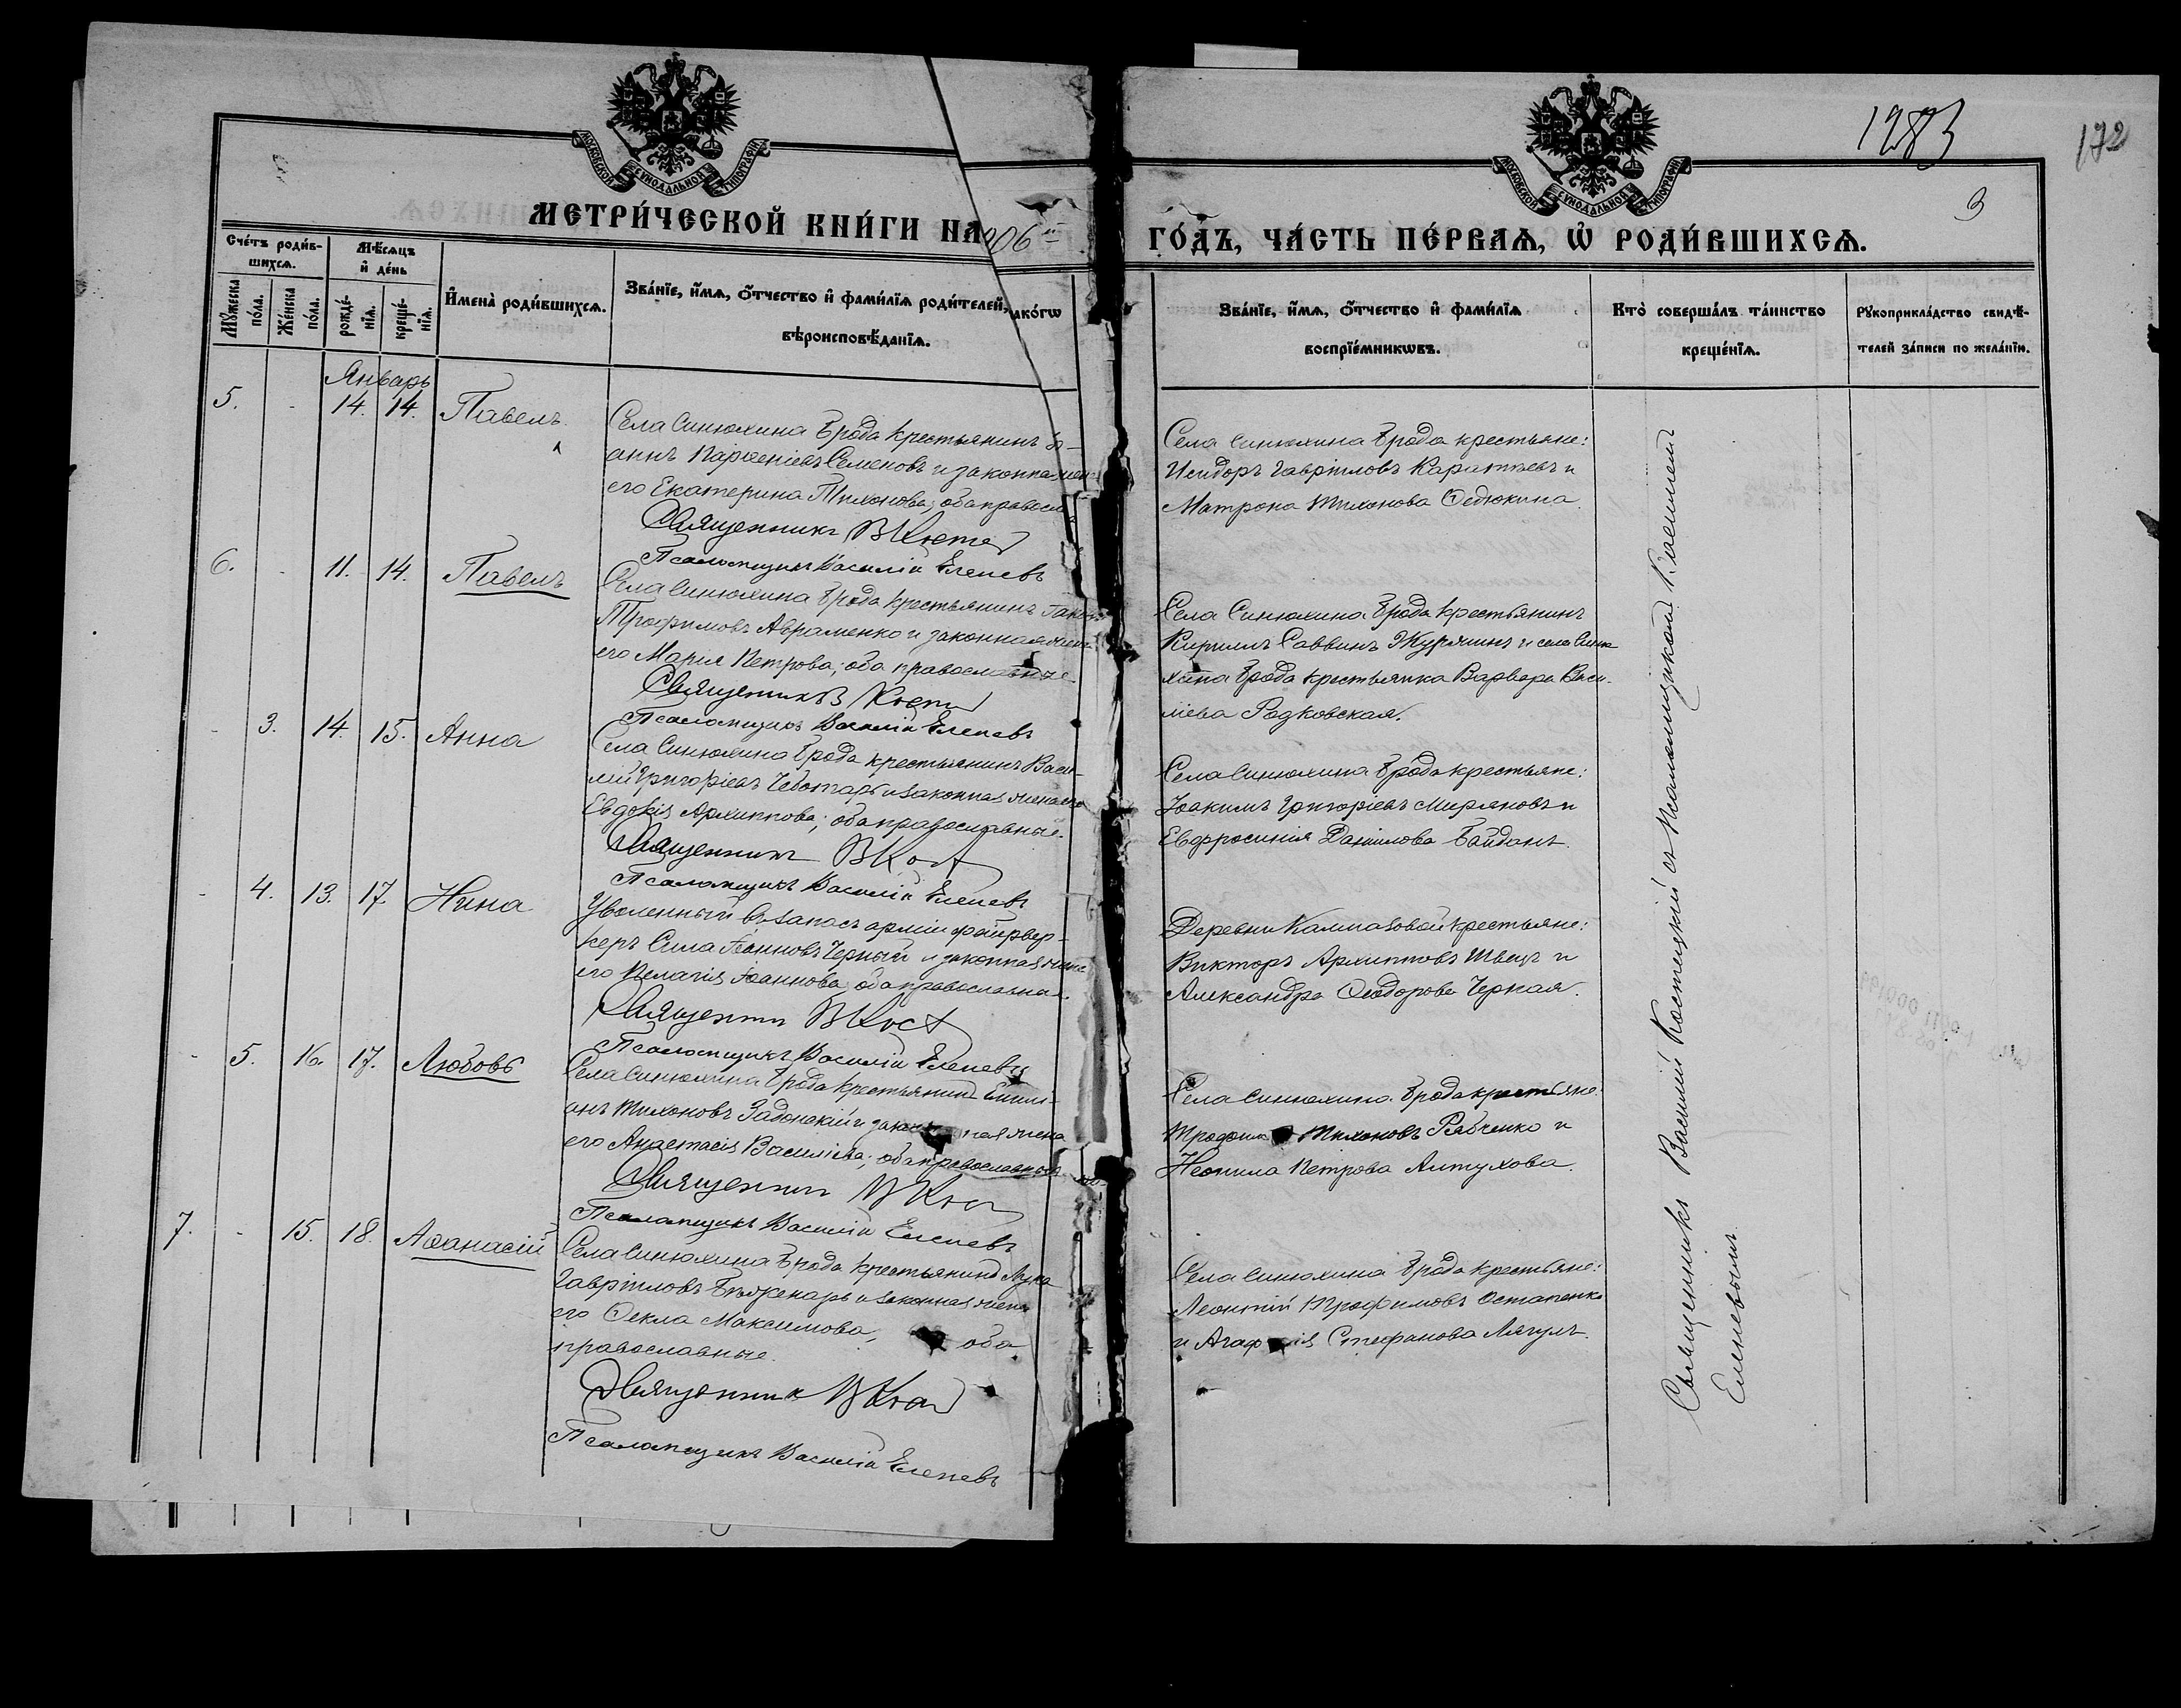 1283
172
3
МОСКОВСКОЙ СѴНОДАЛЬНОЙ ТИПОГРАФІИ
МОСКОВСКОЙ СѴНОДАЛЬНОЙ ТИПОГРАФІИ
МЕТРИ́ЧЕСКОЙ КНИ́ГИ НА 906 й
ГО́ДЪ, ЧА́СТЬ ПЕ́РВАѦ, Ѡ҆ РОДИ́ВШИХСѦ.
Сче́тъ роди́в-
шихсѧ.
Мꙋ́жеска по́ла.
Же́нска по́ла.
Мѣ́сѧцъ и҆ де́нь
рожде́-нїѧ.
креще́-нїѧ.
И҆мена̀ роди́вшихсѧ.
Зва́нїе, и҆́мѧ, ѻ҆́тчество и҆ фами́лїѧ роди́телей, како́гѡ
вѣроисповѣ́данїѧ.
Зва́нїе, и҆́мѧ, ѻ҆́тчество и҆ фами́лїѧ
воспрїе́мникѡвъ.
Кто̀ соверша́лъ та́инство
креще́нїѧ.
Рꙋкоприкла́дство свидѣ́-
телей за́писи по жела́нїю.
Январь
5. - 14. 14. Павелъ.
Села Синюхина Брода крестьянинъ Іо-
аннъ Парѳеніевъ Семеновъ и законная жена
его Екатерина Тихонова; оба правосла
Священникъ В Кост
Псаломщикъ Василій Еленевъ
Села Синюхина Брода крестьяне:
Исидоръ Гавріиловъ и
Матрона Тихонова Ѳедюкина.
6. - 11. 14. Павелъ
Села Синюхина Брода крестьянинъ Іаков
Трофимовъ Авраменко и законная жена
его Марія Петрова; оба православные
Священникъ В Кост
Псаломщикъ Василій Еленевъ
Села Синюхина Брода крестьянинъ
Кириллъ Саввинъ и села Синю-
хина Брода крестьянка Варвара Васи-
ліева Радковская.
- 3. 14. 15. Анна
Села Синюхина Брода крестьянинъ Васи-
лій Григоріевъ Чеботарь и законная жена его
Евдокія Архиппова; оба православные.
Священникъ В Кост
Псаломщикъ Василій Еленевъ
Села Синюхина Брода крестьяне:
Іоакимъ Григоріевъ Миряновъ и
Евфросинія Даніилова Байданъ.
- 4. 13. 17. Нина
Уволенный въ запасъ арміи фейервер-
керъ Сила Іоанновъ Черный и законная жена
его Пелагія Іоаннова; оба православные.
Священник В Кост
Псаломщикъ Василій Еленевъ
Деревни Калмазовой крестьяне:
Викторъ Архипповъ Швецъ и
Александра Ѳеодорова Черная.
- 5. 16. 17. Любовь
Села Синюхина Брода крестьянинъ Емилі-
анъ Тихоновъ Задонскій и законная жена
его Анастасія Василіева; оба православные.
Священник В Кос
Псаломщикъ Василій Еленевъ
Села Синюхина Брода крестьяне:
Трофимъ Тихоновъ Рябченко и
Неонила Петрова Алтухова.
7. - 15. 18. Аѳанасій
Села Синюхина Брода крестьянинъ Лука
Гавріиловъ Бѣженарь и законная жена
его Ѳекла Максимова, оба
православные.
Священник В Кос
Псаломщикъ Василій Еленевъ
Села Синюхина Брода крестьяне:
Леонтій Трофимовъ Остапенко
и Агафія Стефанова Лягулъ.
Священникъ Василій Костецкій съ Псаломщикомъ Василіемъ
Еленевымъ